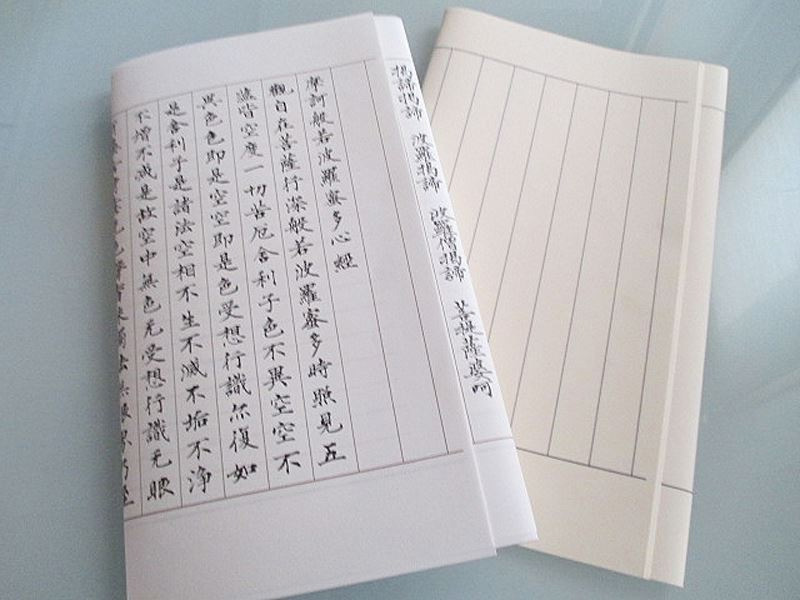 揭諦揭諦 波羅揭諦 波羅僧揭諦 菩提薩婆呵
摩訶般若波羅蜜多心經
觀自在菩薩行深般若波羅蜜多時照見五
蘊皆空度一切苦厄舍利子色不異空空不
異色色即是空空即是色受想行識亦復如
是舍利子是諸法空相不生不滅不垢不浄
不增不減是故空中無色无受想行識无眼